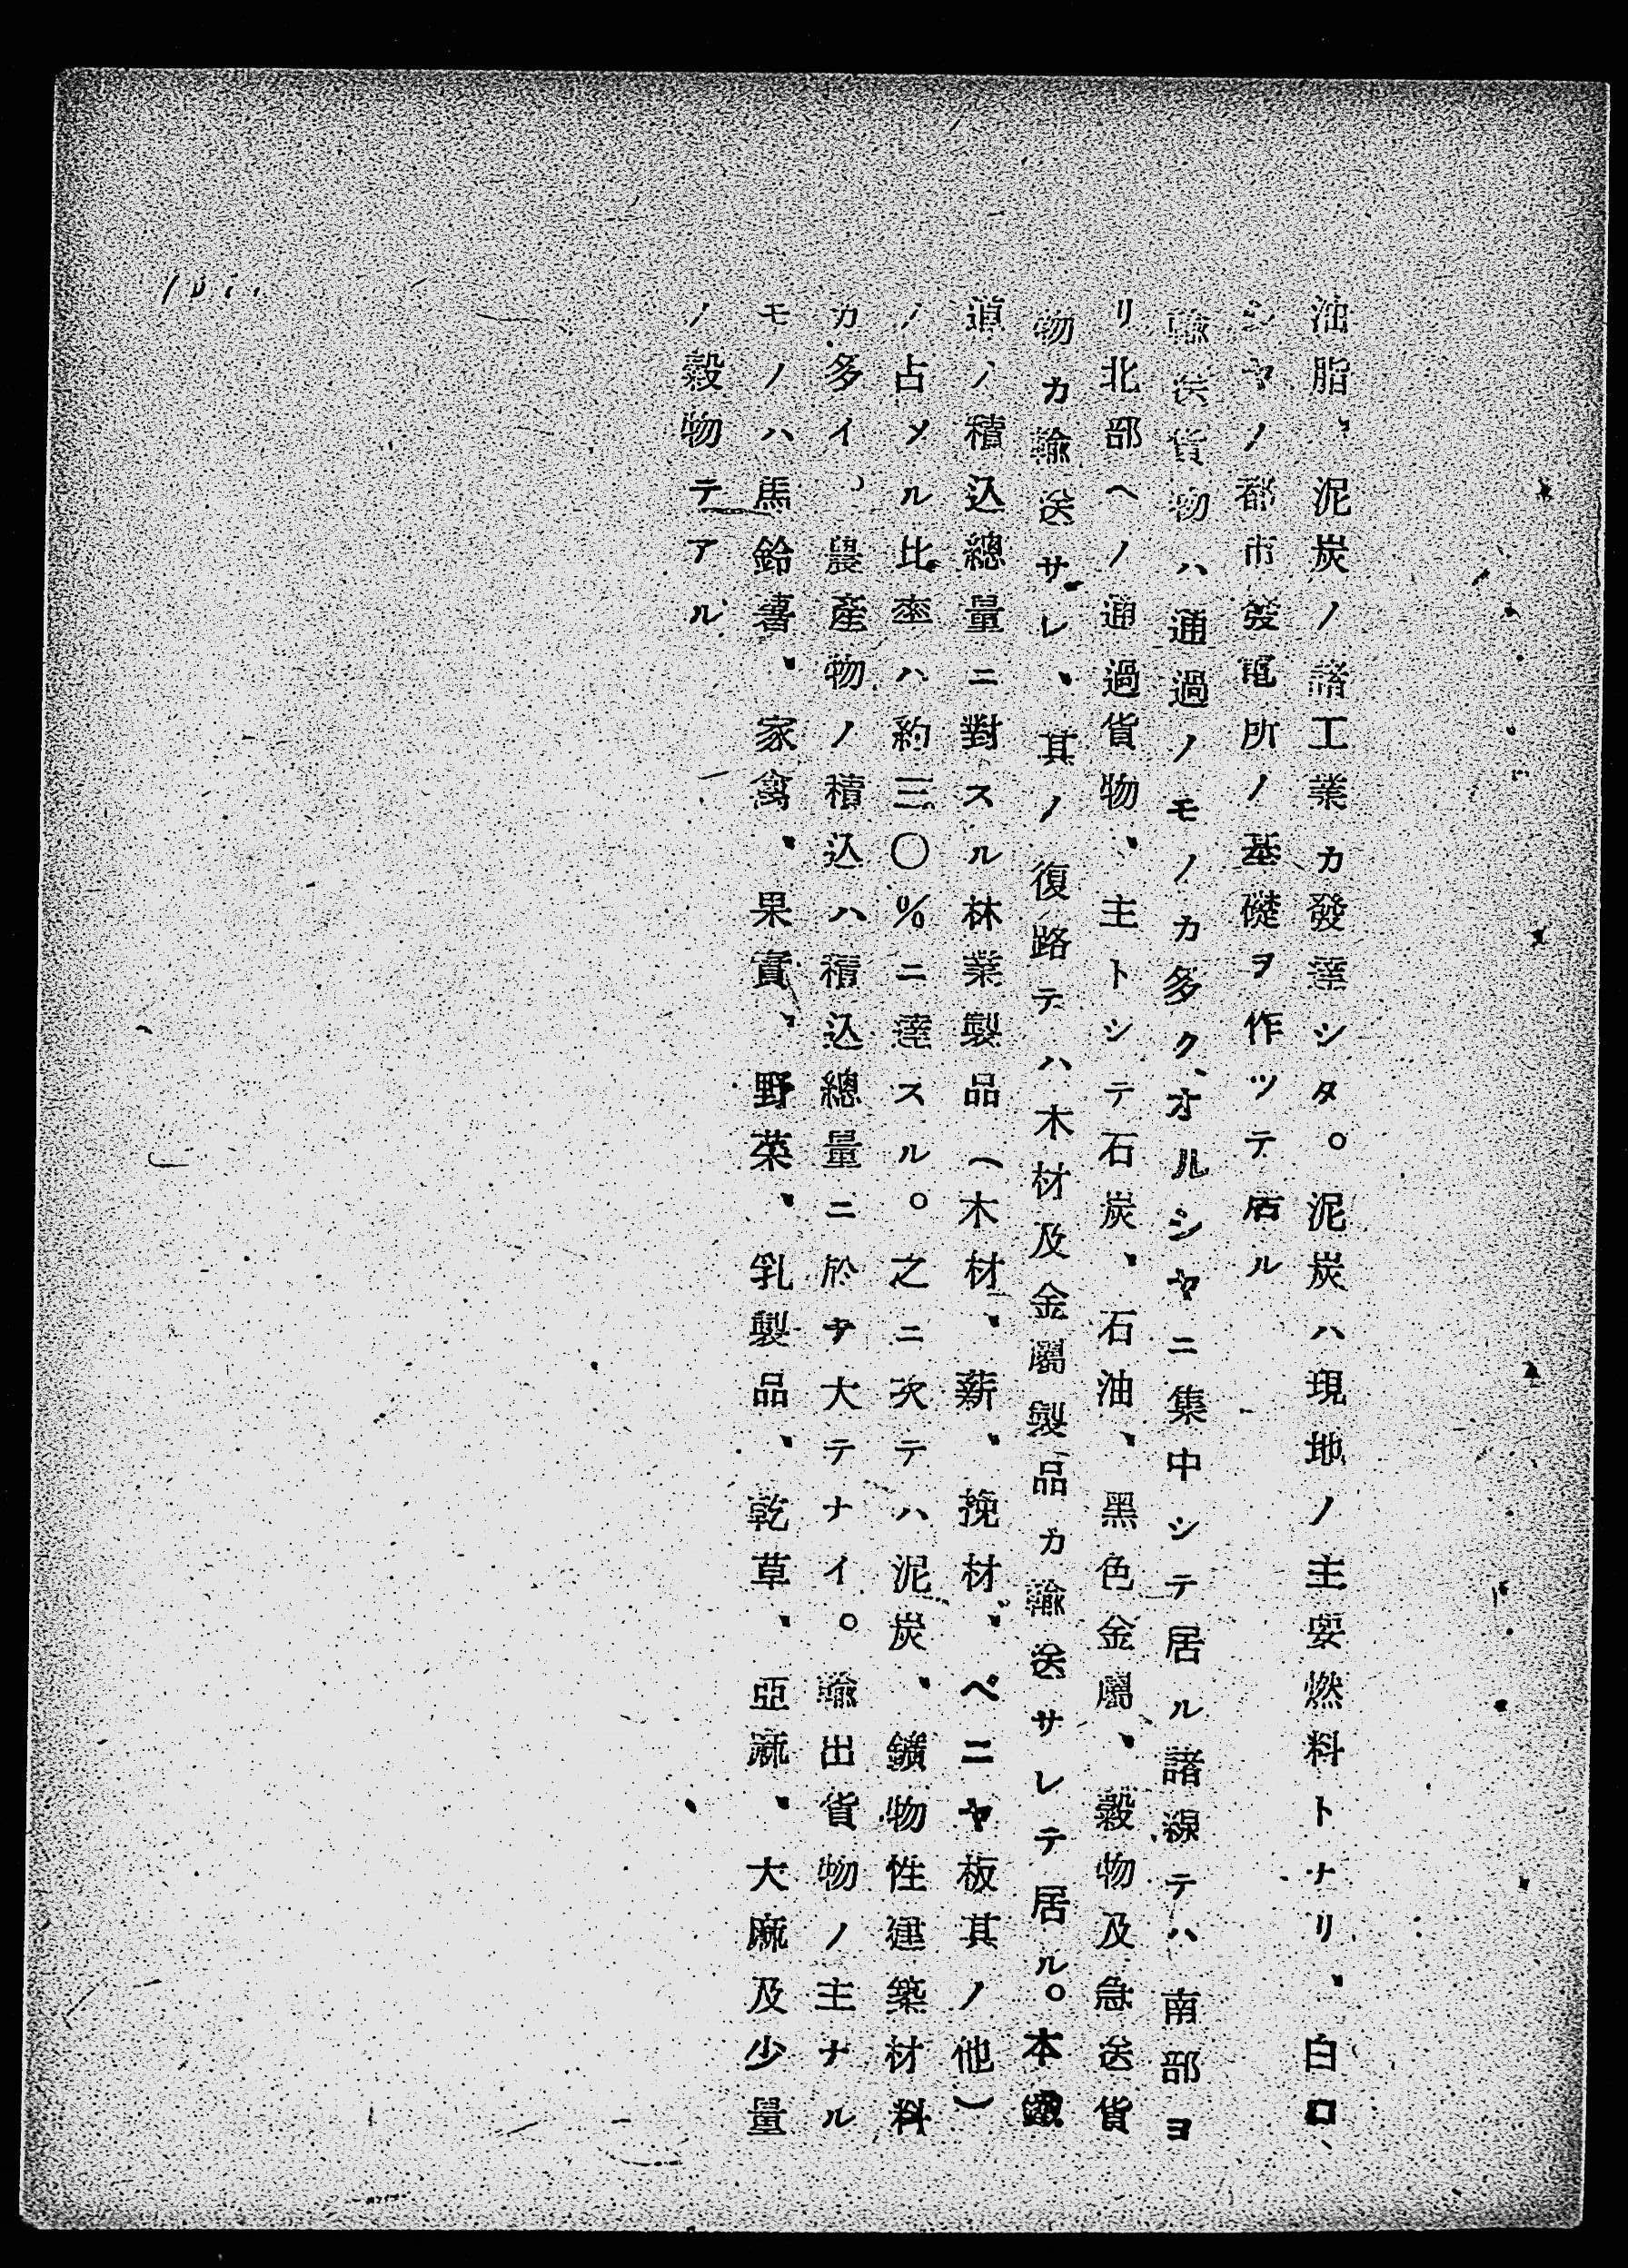 油脂、泥炭ノ諸工業カ發達シタ。泥炭ハ現地ノ主要燃料トナリ、白ロ
シヤノ都市發電所ノ基礎ヲ作ツテ居ル
輸送貨物ハ通過ノモノカ多ク、オルシヤニ集中シテ居ル諸線テハ南部ヨ
リ北部ヘノ通過貨物、主トシテ石炭、石油、黑色金屬、穀物及急送貨
物カ輸送サレ、其ノ復路テハ木材及金屬製品カ輸送サレテ居ル。本鐵
道ノ積込總量ニ對スル林業製品（木材、薪、挽材、ペニヤ板其ノ他）
ノ占メル比率ハ約三〇％ニ達スル。之ニ次テハ泥炭、鑛物性建築材料
カ多イ、農産物ノ積込ハ積込總量ニ於テ大テナイ。輸出貨物ノ主ナル
モノハ馬鈴薯、家禽、果實、野菜、乳製品、乾草、亞麻、大麻及少量
ノ穀物テアル